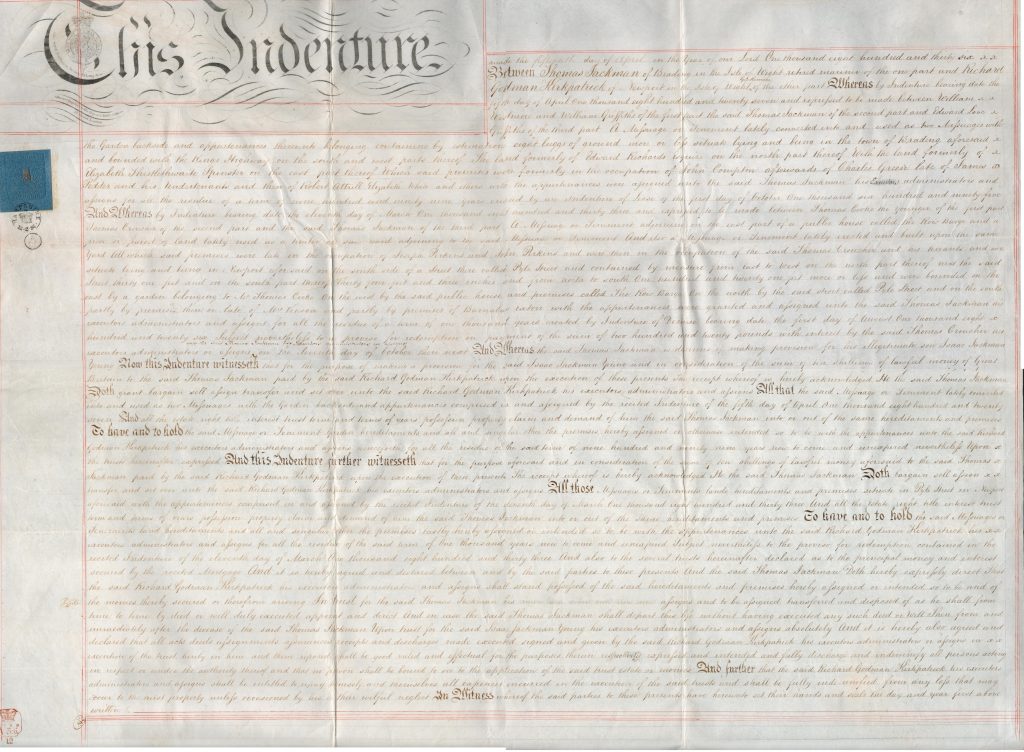 This Indenture
made the fifteenth day of April in the year of our Lord One thousand eight hundred and thirty six x x
Between Thomas Jackman of Brading in the Isle of Wight retired mariner of the one part and Richard
Godman Kirkpatrick of Newport in the Isle of Wight of the other part Whereas by Indenture bearing date the
fifth day of April One thousand eight hundred and twenty seven and expressed to be made between William x x
and William Griffiths of the first part the said Thomas Jackman of the second part and Edward x
Griffiths of the third part A Messuage or Tenement lately converted into and used as two Messuages with
the Garden backside and appurtenances thereunto belonging containing by estimation eight luggs of ground more or less situate lying and being in the town of Brading aforesaid x
and bounded with the Kings Highway on the south and west parts thereof The land formerly of Edward Richards on the north part thereof With the land formerly of x
Elizabeth Spinster on the east part thereof Which said premises were formerly in the occupation of John Compton afterwards of Charles late of James
and the appurtenances were assigned unto the said Thomas Jackman his administrators and
assigns for the residue of a term of one hundred and ninety created by an Indenture of Lease of the first day of October One thousand six hundred and ninety four
And Whereas by Indenture bearing date the eleventh day of March One thousand eight hundred and thirty three and expressed to be made between Thomas Cooke of the first part
James of the second part and the said Thomas Jackman of the third part A Messuage or Tenement adjoining on the east part of a public house called the Row Barge and a
piece or parcel of Land lately used as a timber yard and adjoining to the said Messuage or Tenement And also a Messuage or Tenement lately erected and built upon the same
Yard All which said premises were late in the occupation of Joseph Perkins and John Perkins and were then in the occupation of the said Thomas and his tenants and are
situate lying and being in Newport aforesaid on the south side of a Street there called Pyle Street and contained by measure from east to west on the north part thereof next the said
Street thirty one feet and on the south part thereof thirty four feet and three inches and from north to south One hundred and twenty one feet more or less and were bounded on the
east by a garden belonging to Mr Thomas Cooke On the west by the said public house and premises called The Row Barge On the north by the said street called Pyle Street and on the south
partly by premises then or late of Mr and partly by premises of Barnabas with the appurtenances were granted and assigned unto the said Thomas Jackman his
executors administrators and assigns for all the residue of a term of one thousand years created by Indenture of Demise bearing date the first day of August One thousand eight x
hundred and twenty six Subject nevertheless to a proviso for redemption on payment of the sum of two hundred and twenty pounds with interest by the said Thomas his
executors administrators or assigns on the eleventh day of October then next And Whereas the said Thomas Jackman is desirous of making provision for his illegitimate son Isaac Jackman
Young Now this Indenture witnesseth that for the purpose of making a provision for the said Isaac Jackman Young and in consideration of the sum of ten shillings of lawful money of Great
Britain to the said Thomas Jackman paid by the said Richard Godman Kirkpatrick upon the execution of these presents the receipt whereof is hereby acknowledged He the said Thomas Jackman
Doth grant bargain sell assign transfer and set over unto the said Richard Godman Kirkpatrick his executors administrators and assigns All that the said Messuage or Tenement lately converted
into and used as two Messuages with the Garden backside and appurtenances comprised in and assigned by the recited Indenture of the fifth day of April One thousand eight hundred and twenty
seven And all the right title interest trust term and terms of years possession property claim and demand of him the said Thomas Jackman into or out of the same hereditaments and premises
To have and to hold the said Messuage or Tenement Garden hereditaments and all and singular other the premises hereby assigned or otherwise intended so to be with the appurtenances unto the said Richard
Godman Kirkpatrick his executors administrators and assigns for all the residue of the said term of one hundred and ninety nine years now to come and unexpired nevertheless Upon x
the trusts hereinafter expressed And this Indenture further witnesseth that for the purpose aforesaid and in consideration of the sum of ten shillings of lawful money aforesaid to the said Thomas x
Jackman paid by the said Richard Godman Kirkpatrick upon the execution of these presents The receipt whereof is hereby acknowledged He the said Thomas Jackman Doth bargain sell assign x x
transfer and set over unto the said Richard Godman Kirkpatrick his executors administrators and assigns All those Messuages or Tenements lands hereditaments and premises situate in Pyle Street in Newport
aforesaid with the appurtenances comprised in and assigned by the recited Indenture of the eleventh day of March One thousand eight hundred and thirty three And all the right title interest
term and terms of years possession property claim and demand of him the said Thomas Jackman into or out of the same hereditaments and premises To have and to hold the said Messuages or
Tenements land hereditaments and all and singular other the premises lastly hereby assigned or intended so to be with the appurtenances unto the said Richard Godman Kirkpatrick his x x
executors administrators and assigns for all the residue of the said term of one thousand years now to come and unexpired Subject nevertheless to the proviso for redemption contained in the
recited Indenture of the eleventh day of March One thousand eight hundred and thirty three And also to the several trusts hereinafter declared as to the principal money and interest
secured by the recited Mortgage And it is hereby agreed and declared between and by the said parties to these presents And the said Thomas Jackman Doth hereby expressly direct That
the said Richard Godman Kirkpatrick his executors administrators and assigns shall stand possessed of the said hereditaments and premises hereby assigned or intended so to be and of
the monies thereby secured or therefrom arising In trust for the said Thomas Jackman his assigns and to be assigned transferred and disposed of as he shall from
time to time by deed or will duly executed appoint and direct And in case the said Thomas Jackman shall depart this life without having executed any such deed or will Then from and
immediately after the decease of the said Thomas Jackman Upon trust for the said Isaac Jackman Young his executors administrators and assigns absolutely And it is hereby also agreed and
declared that all acts receipts agreements assignments and discharges made executed signed and given by the said Richard Godman Kirkpatrick his executors administrators or assigns in x x
execution of the trust hereby in him and them reposed shall be good valid and effectual for the purposes therein expressed and intended and fully discharge and indemnify all persons acting
in respect or under the authority thereof and that no person shall be bound to see to the application of the said trust estate or monies And further that the said Richard Godman Kirkpatrick his executors
administrators and assigns shall be entitled to reimburse themselves all expenses incurred in the execution of the said trusts and shall be fully indemnified from any loss that may
occur to the trust property unless occasioned by his or their wilful neglect In Witness whereof the said parties to these presents have hereunto set their hands and seals the day and year first above
written